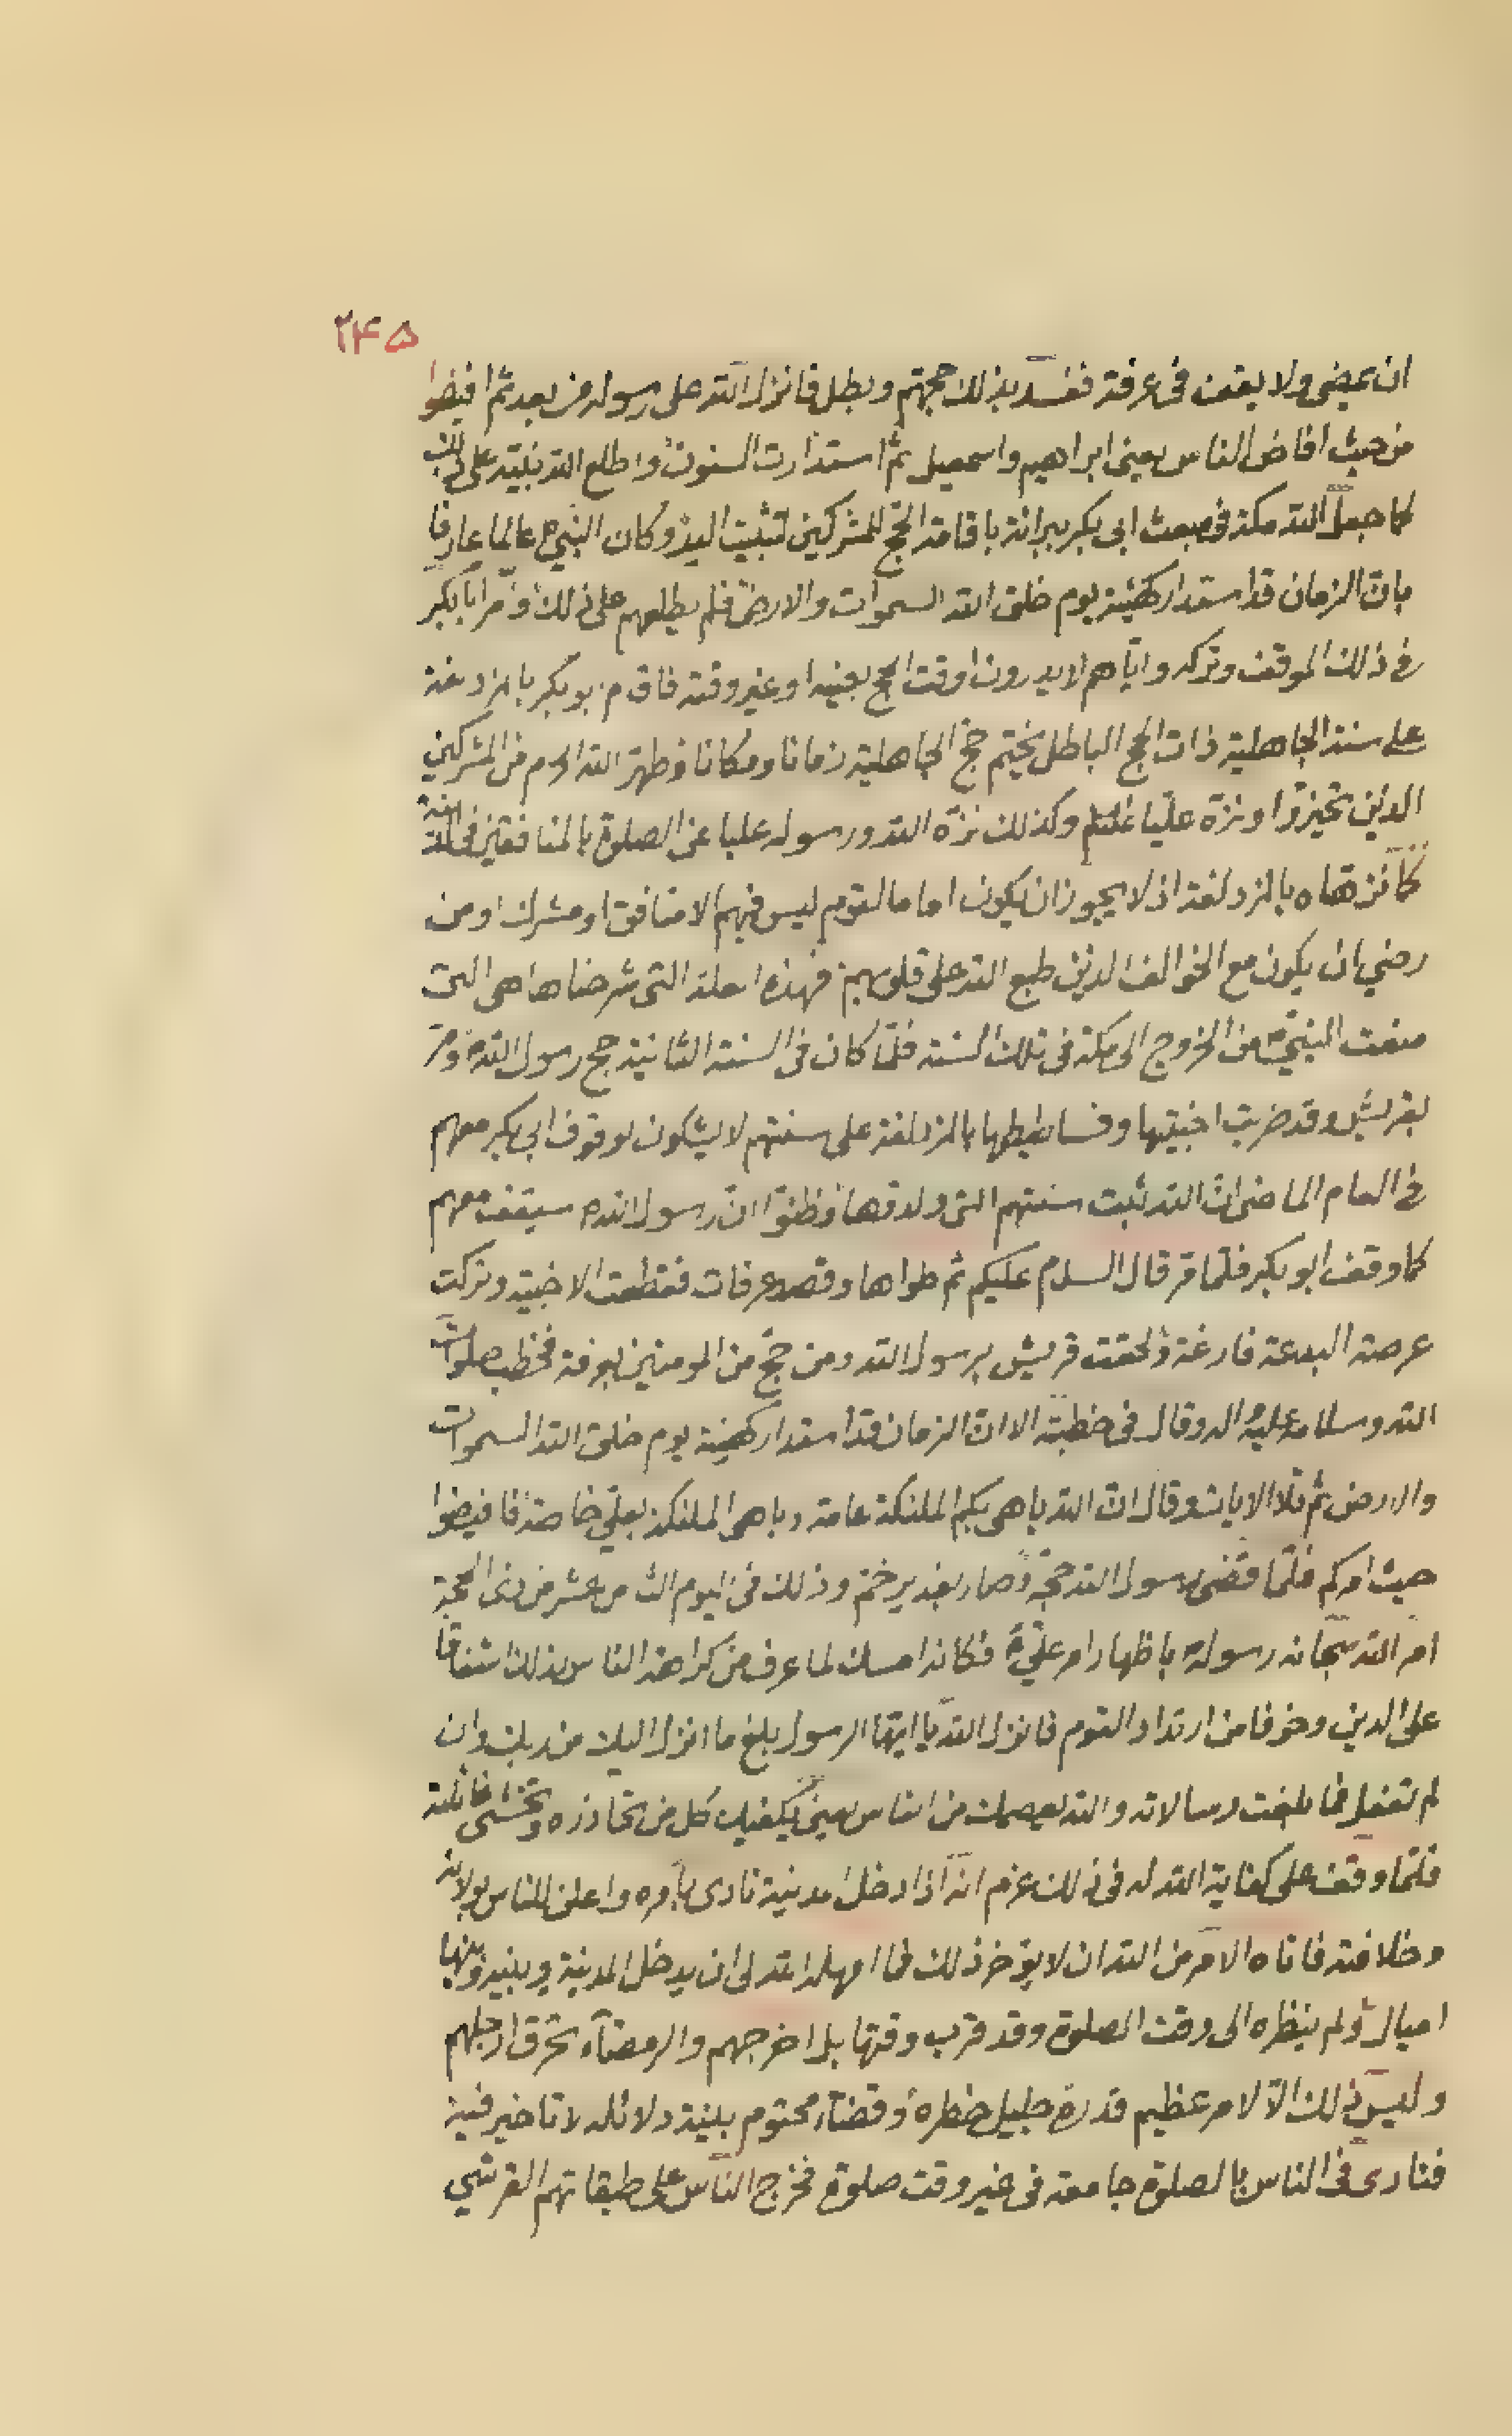 ۲۴۵
ان يمضى ولا يقف فى عرفة ففسد بذلك حجتهم وبطل فانزل الله على رسوله من بعد ثم افيضوا
من حيث افاض الناس يعنى ابراهيم واسمعيل ثم استدارت السنون واطلع الله نبيّه على ذلك
لما جعل الله مكة فى مبعث ابى بكر ببرائة باقامة الحج للمشركين لتثبيت اليه وكان النبى ص عالما عارفا
بان الزمان قد استدار كهيئته يوم خلق الله السموات والارض فلم يطلعهم على ذلك وامر ابا بكر
فى ذلك الموقف وتركه واياهم لا يدرون اوقت الحج بعينه او غير وقته فاقام ابو بكر بالمزدلفة
على سنة الجاهلية ذات الحج الباطل يختم حج الجاهلية زمانا ومكانا وطهر الله الحرم من المشركين
الذين تحيزوا ونزه عليا عنهم وكذلك نزه الله ورسوله عليا عن الصلوة بالمنافقين فى المدينة
كما نزهاه بالمزدلفة اذ لا يجوز ان يكون اماما لقوم ليس فيهم الا منافق او مشرك او من
رضي ان يكون مع الخوالف الذين طبع الله على قلوبهم فهذه العلة التى شرحناها هى التى
منعت النبى ص من الخروج الى مكة فى تلك السنة فلما كان فى السنة الثانية حج رسول الله ص ومر
بقريش وقد ضربت اخبيتها وفساطيطها بالمزدلفة على سنتهم لا يشكون لوقوف ابى بكر معهم
فى العام الماضى ان الله ثبت سنتهم التى ولدوها وظنوا ان رسول الله ص سيقف معهم
كما وقف ابو بكر فلما مر قال السلام عليكم ثم طواها وقصد عرفات فقطعت الاخبية وتركت
عرصة البدعة فارغة ولحقت قريش برسول الله ومن حج من المومنين بعرفة فخطب صلوات
الله وسلامه عليه واله وقال فى خطبته الا ان الزمان قد استدار كهيئته يوم خلق الله السموات
والارض ثم تلا الايات وقال ان الله باهى بكم الملئكة عامة وباهى الملئكة بعلى خاصة فافيضوا
حيث امركم فلما قضى رسول الله حجه وصار بغدير خم وذلك فى اليوم الثامن عشر من ذى الحجة
امر الله سبحانه رسوله ص باظهار امر على ع فكانه امسك لما عرف من كراهة الناس لذلك اشفاقا
على الدين وخوفا من ارتداد القوم فانزل الله يا ايها الرسول بلغ ما انزل اليك من ربك وان
لم تفعل فما بلغت رسالاته والله يعصمك من الناس يعنى يكفيك كل من تحاذره وتخشى غائلته
فلما وقف على كفاية الله له فى ذلك عزم انه اذا دخل مدينة نادى بامره واعلن للناس بولايته
وخلافته فاتاه الامر من الله ان لا يؤخر ذلك فما امهله الله الى ان يدخل المدينة وبينه وبينها
اميال ولم ينظره الى وقت الصلوة وقد قرب وقتها بل اخرجهم والرمضآء تحرق ارجلهم
وليس ذلك الا لامر عظيم قدره جليل خطره وقضآء محتوم بينة دلائله لا تاخير فيه
فنادى فى الناس بالصلوة جامعة فى غير وقت صلوة فخرج الناس على طبقاتهم القرشي